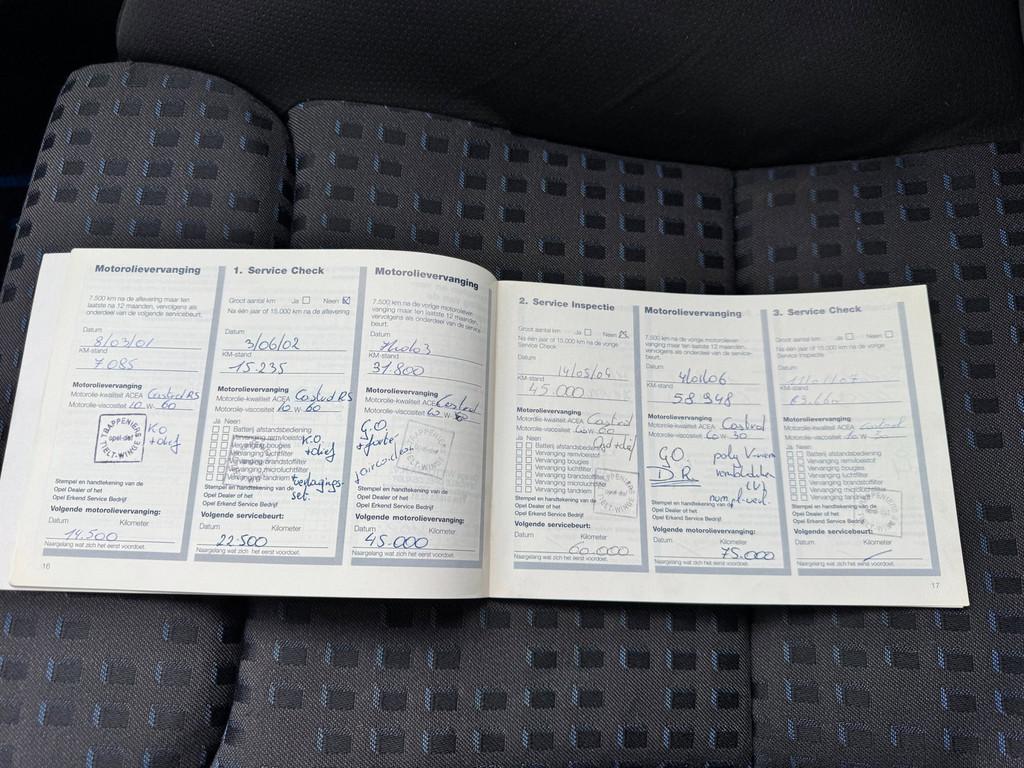 Motorolievervanging
7.500 km na de aflevering maar ten
laatste na 12 maanden, vervolgens als
onderdeel van de volgende servicebeurt.
Datum
8/03/01
KM-stand
7085
Motorolievervanging
Motorolie-kwaliteit ACEA Castrol RS
Motorolie-viscositeit 10 W 60
TRAPPENIERS
opel-dat
TIELT-WINGE
K.O
+ olief
Stempel en handtekening van de
Opel Dealer of het
Opel Erkend Service Bedrijf
Volgende motorolievervanging:
Datum Kilometer
14.500
Naargelang wat zich het eerst voordoet.
16
1. Service Check
Groot aantal km Ja Neen
Na één jaar of 15.000 km na de aflevering
Datum
3/06/02
KM-stand
15.235
Motorolievervanging
Motorolie-kwaliteit ACEA Castrol RS
Motorolie-viscositeit 10 W 60
Ja Neen
Batterij afstandsbediening
Vervanging remvloeistof
Vervanging bougies
Vervanging luchtfilter
Vervanging brandstoffilter
Vervanging microluchtfilter
Vervanging tandriem
K.O.
+ olief
Stempel en handtekening van de
Opel Dealer of het
Opel Erkend Service Bedrijf
Volgende servicebeurt:
Datum Kilometer
22500
Naargelang wat zich het eerst voordoet.
Motorolievervanging
7.500 km na de vorige motoroliever-
vanging maar ten laatste na 12 maanden,
vervolgens als onderdeel van de service-
beurt.
Datum
KM-stand
31.800
Motorolievervanging
Motorolie-kwaliteit ACEA Castrol
Motorolie-viscositeit
G.O.
Stempel en handtekening van de
Opel Dealer of het
Opel Erkend Service Bedrijf
Volgende motorolievervanging:
Datum Kilometer
45.000
Naargelang wat zich het eerst voordoet.
2. Service Inspectie
Groot aantal km Ja Neen
Na één jaar of 15.000 km na de vorige
Service Check
Datum
14/05/04
KM-stand
45.000
Motorolievervanging
Motorolie-kwaliteit ACEA Castrol
Motorolie-viscositeit
Ja Neen
Batterij afstandsbediening
Vervanging remvloeistof
Vervanging bougies
Vervanging luchtfilter
Vervanging brandstoffilter
Vervanging microluchtfilter
Vervanging tandriem
Stempel en handtekening van de
Opel Dealer of het
Opel Erkend Service Bedrijf
Volgende servicebeurt:
Datum Kilometer
60.000
Naargelang wat zich het eerst voordoet.
Motorolievervanging
7.500 km na de vorige motorolieverver-
vanging maar ten laatste na 12 maanden,
vervolgens als onderdeel van de service-
beurt.
Datum
4/01/06
KM-stand
58 948
Motorolievervanging
Motorolie-kwaliteit ACEA Castrol
Motorolie-viscositeit
GO
D.R.
poly V-riem
Stempel en handtekening van de
Opel Dealer of het
Opel Erkend Service Bedrijf
Volgende motorolievervanging:
Datum Kilometer
75.000
Naargelang wat zich het eerst voordoet.
3. Service Check
Groot aantal km Ja Neen
Na één jaar of 15.000 km na de vorige
Service Inspectie
Datum
KM-stand
Motorolievervanging
Motorolie-kwaliteit ACEA Castrol
Motorolie-viscositeit
Ja Neen
Batterij afstandsbediening
Vervanging remvloeistof
Vervanging bougies
Vervanging luchtfilter
Vervanging brandstoffilter
Vervanging microluchtfilter
Vervanging tandriem
Stempel en handtekening van de
Opel Dealer of het
Opel Erkend Service Bedrijf
Volgende servicebeurt:
Datum Kilometer
Naargelang wat zich het eerst voordoet.
17